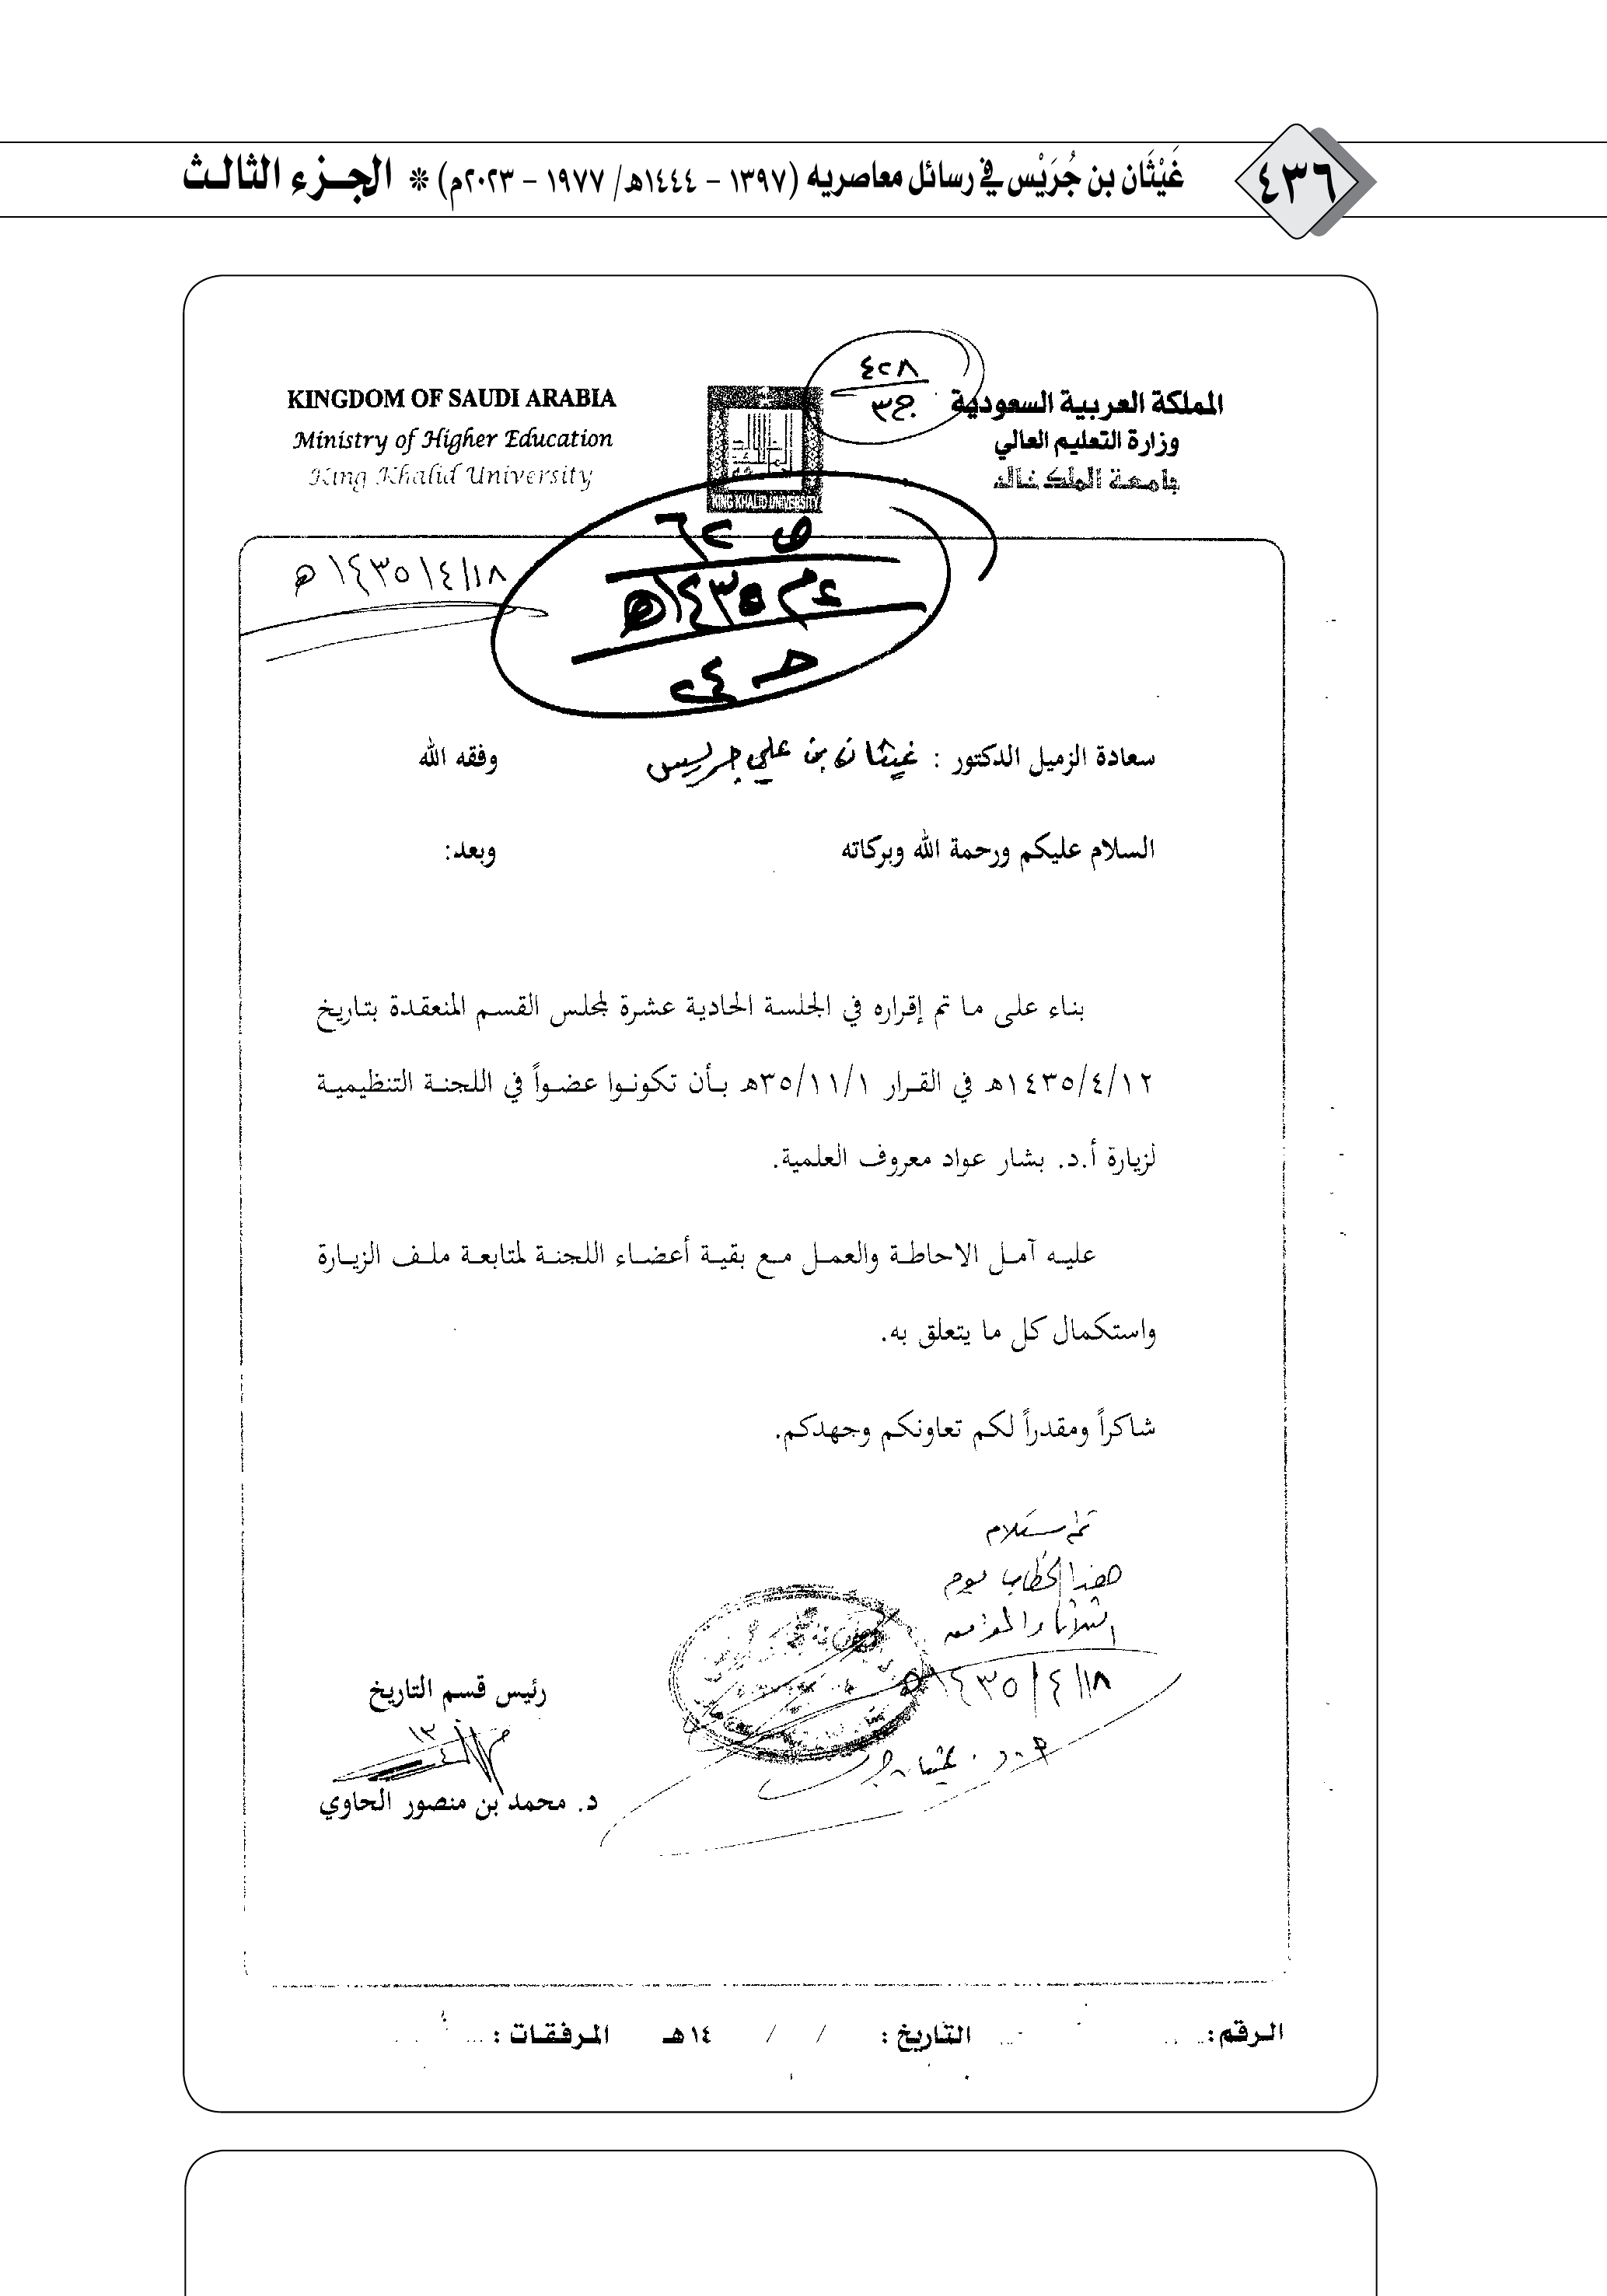 ٤٣٦
غَيْثَان بن جُرَيْس في رسائل معاصريه (١٣٩٧ - ١٤٤٤هـ/ ١٩٧٧ - ٢٠٢٣م) * الجـزء الثالـث
٤٢٨
ج٣
المملكة العربية السعودية
وزارة التعليم العالي
جامعة الملك خالد
KINGDOM OF SAUDI ARABIA
Ministry of Higher Education
King Khalid University
KING KHALID UNIVERSITY
ص ٦٢
١٤٣٥هـ
حـ ٢٤
١٤٣٥/٤/١٨ هـ
سعادة الزميل الدكتور : غيثان بن علي جريس وفقه الله
السلام عليكم ورحمة الله وبركاته وبعد:
بناء على ما تم إقراره في الجلسة الحادية عشرة لمجلس القسم المنعقدة بتاريخ
١٤٣٥/٤/١٢هـ في القرار ٣٥/١١/١هـ بأن تكونوا عضواً في اللجنة التنظيمية
لزيارة أ.د. بشار عواد معروف العلمية.
عليه آمل الاحاطة والعمل مع بقية أعضاء اللجنة لمتابعة ملف الزيارة
واستكمال كل ما يتعلق به.
شاكراً ومقدراً لكم تعاونكم وجهدكم.
تم استلام
هذا الخطاب يوم
الثلاثاء الموافق
١٤٣٥/٤/١٨هـ
أ.د. غيثان جريس
رئيس قسم التاريخ
د. محمد بن منصور الحاوي
الـرقم: التاريخ : / / ١٤هـ المرفقات :